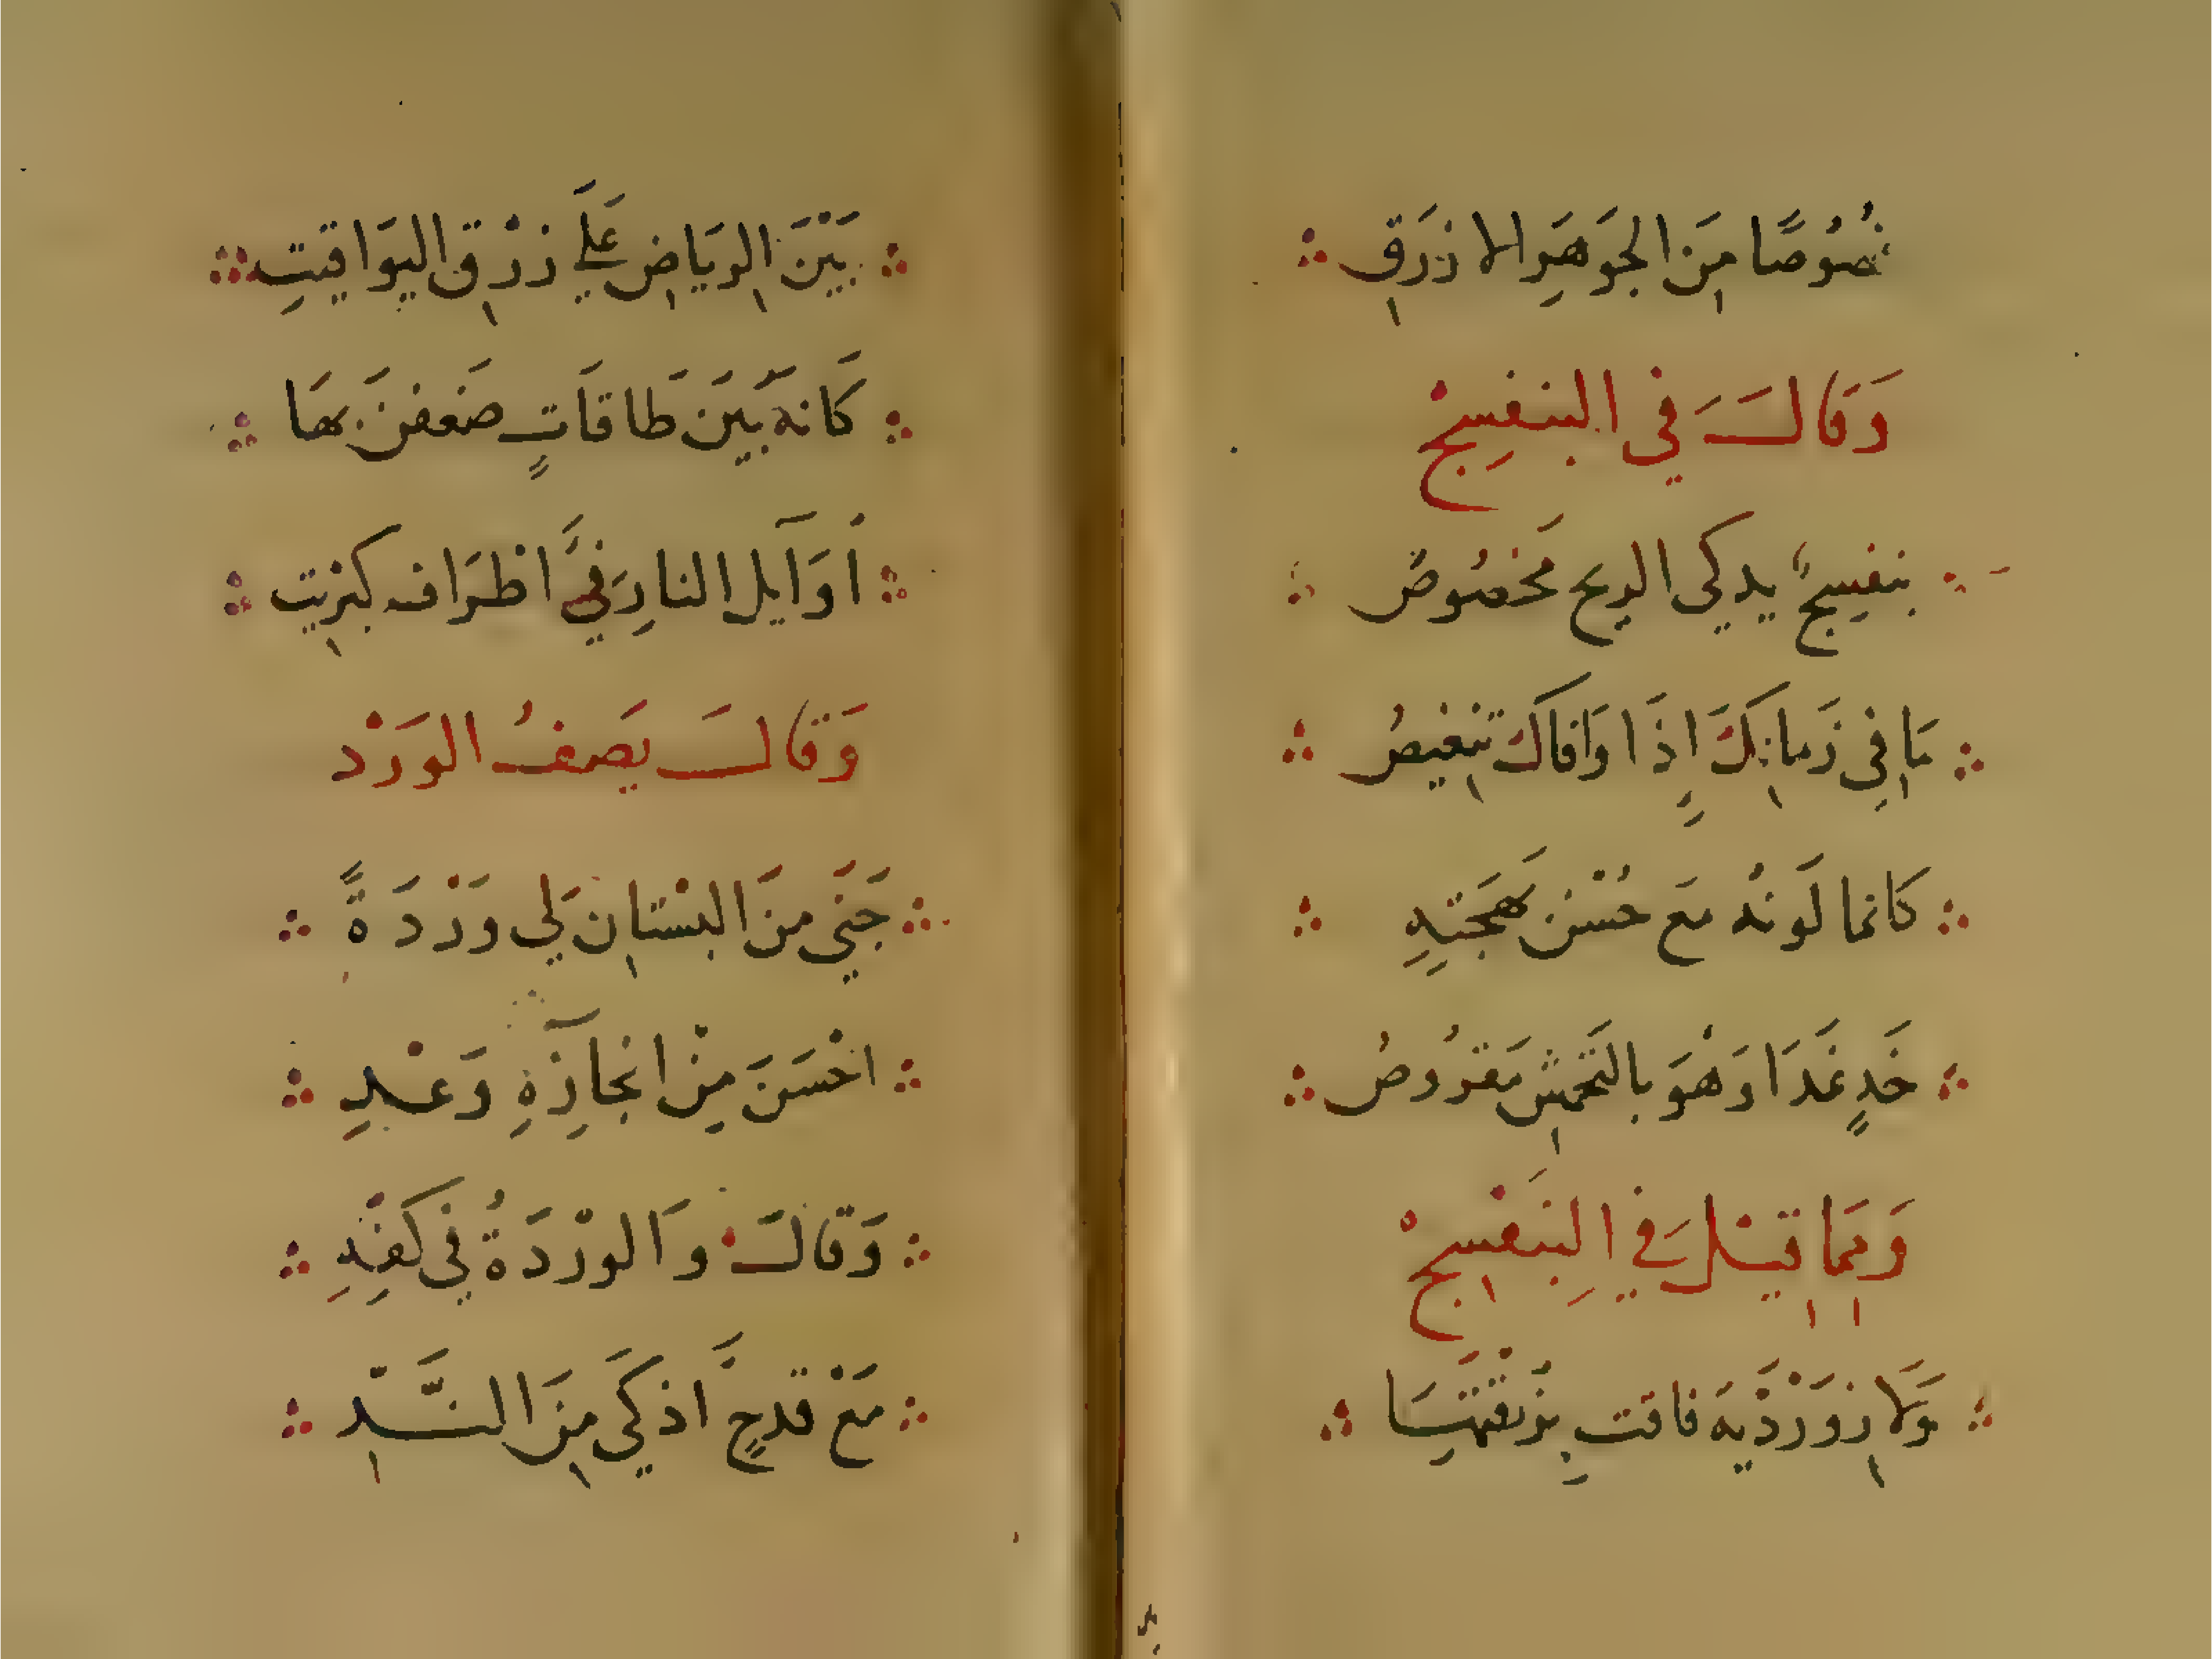 فُصُوصًا مِنَ الجَوهَرِ الازرَقِ
وَقَالَ في البنفسِجْ
بنفسِجٌ يدكى الريح مَخصُوصٌ
مَا فِي زَمانِكَ إِذَا وَافاكَ تنغيصُ
كَانما لَونُه مَع حُسْنِ بَهجَتِهِ
خَدٍ غَدَا وَهْوَ بالتَخمشِ مَقرُوصُ
وَمِمَا قيْل فِي البِنَفْسِجْ
وَلَازوَرْدّيهَ فاقت بِزرْقَتهَا
بَيْنَ الرِيَاضِ عَلَى زرْقِ اليوَاقيتِ
كَانهَ بَيَن طَاقَاتٍ ضَعفنَ بهَا
أوَايل النارِ في اطرَاف كبرِيت
وَقَالَ يَصفُ الورَدْ
جَنَى منَ البسْتانِ لي وَرْدَةً
احْسَنَ مِنْ انجازِهِ وَعْدِ
وَقَالَتْ وَالورْدَةُ في كَفِهِ
مَعْ قدحٍ اذكَى مِنَ النَّدِّ